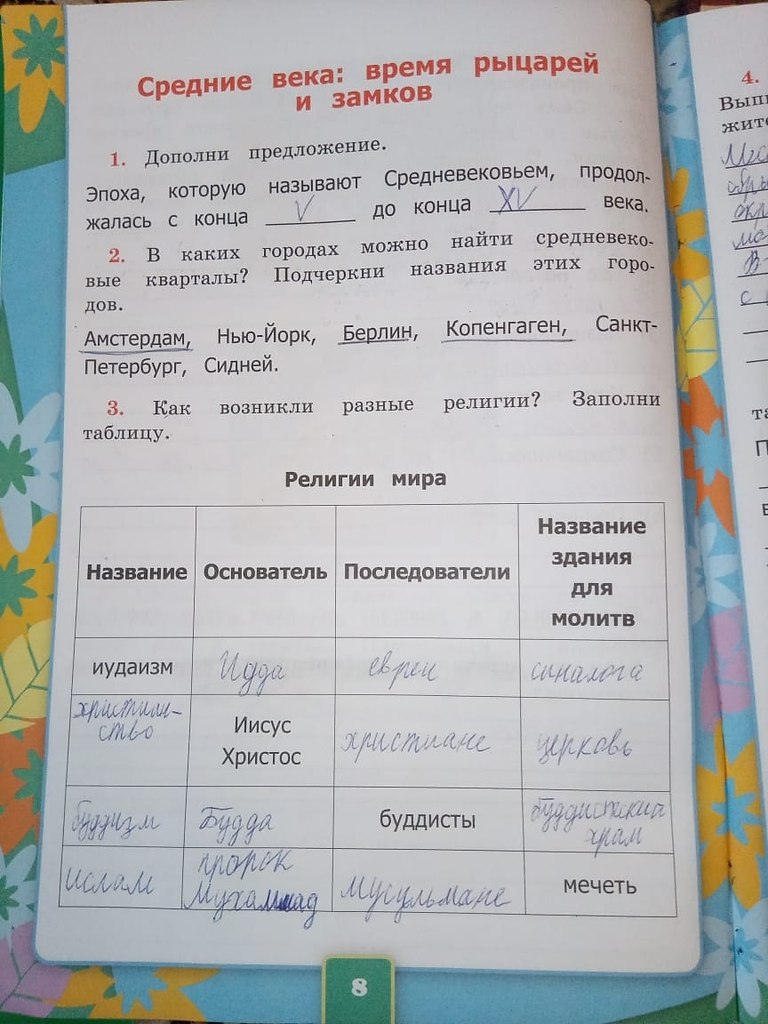 Средние века: время рыцарей
и замков
1. Дополни предложение.
Эпоха, которую называют Средневековьем, продол-
жалась с конца V до конца XV века.
2. В каких городах можно найти средневеко-
вые кварталы? Подчеркни названия этих горо-
дов.
Амстердам, Нью-Йорк, Берлин, Копенгаген, Санкт-
Петербург, Сидней.
3. Как возникли разные религии? Заполни
таблицу.
Религии мира
Название Основатель Последователи Название
здания
для
молитв
иудаизм Иуда евреи синагога
христиан-
ство
Иисус
Христос
христиане церковь
буддизм Будда буддисты буддистский
храм
ислам пророк
Мухаммад
мусульмане мечеть
8
4.
Выпи
жите